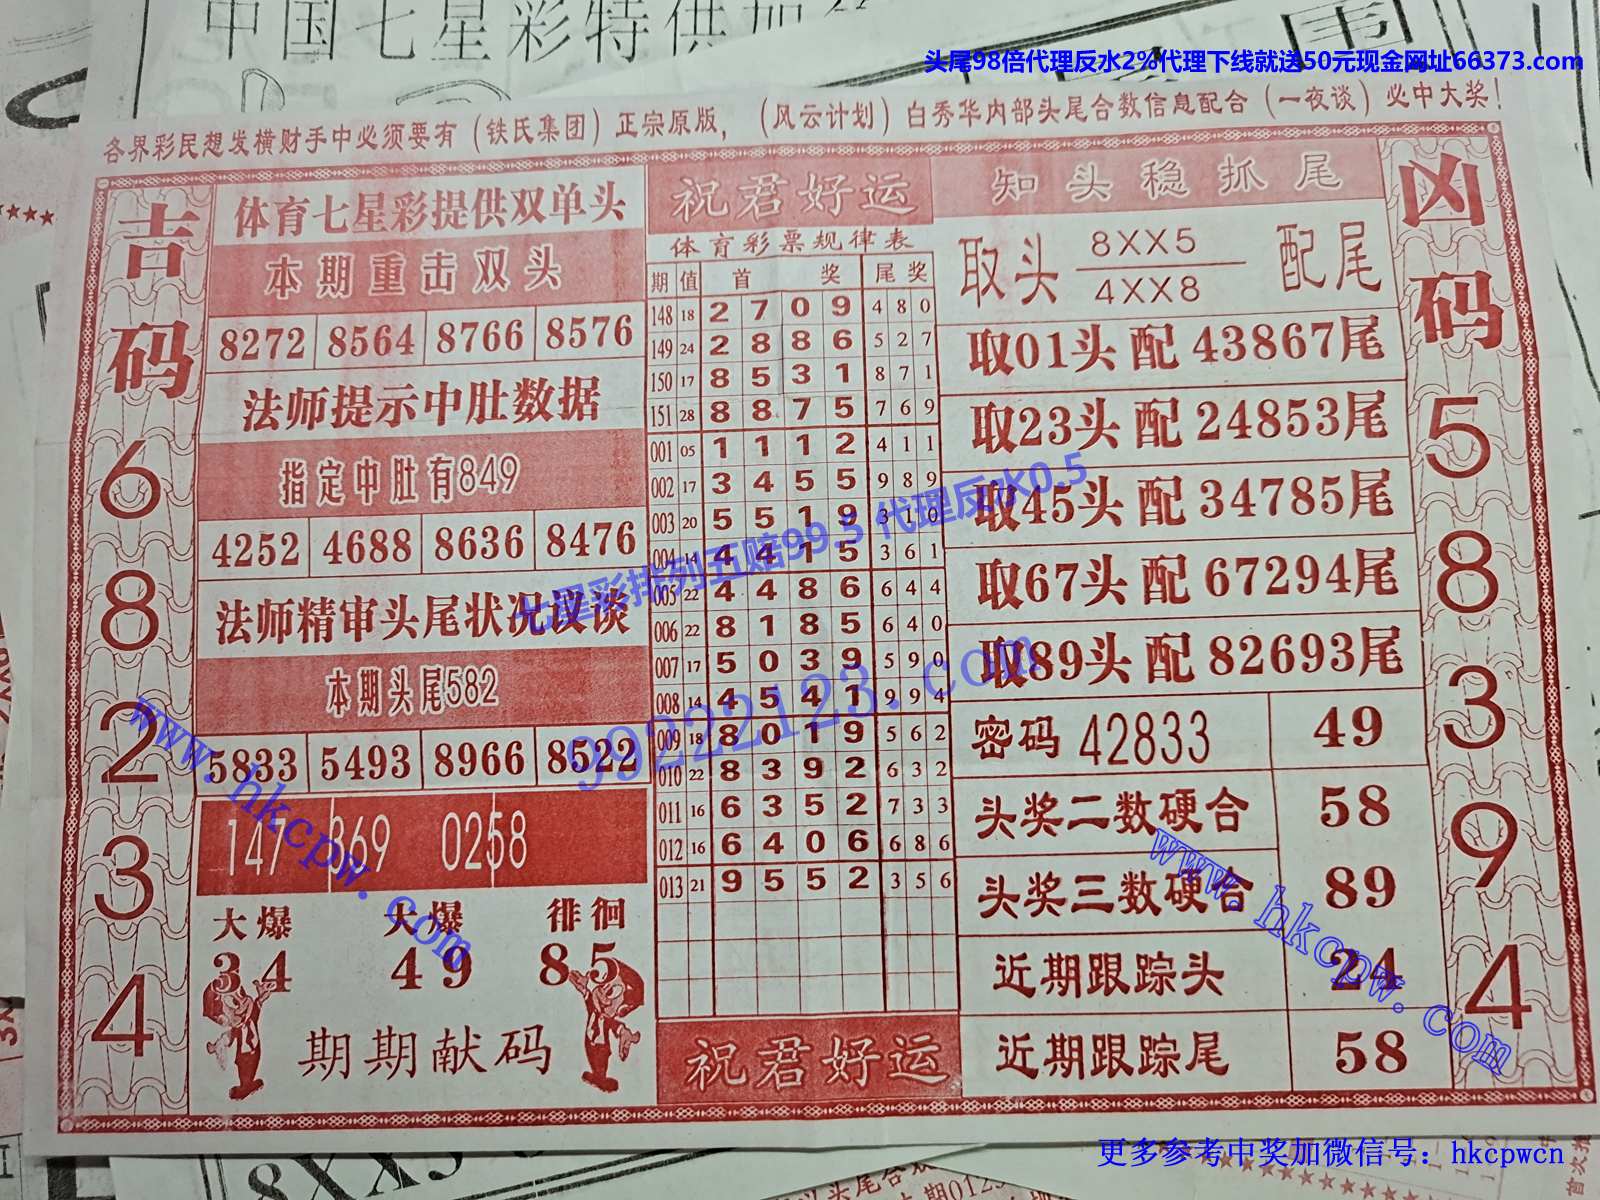 中国七星彩特供加
头尾98倍代理反水2%代理下线就送50元现金网址66373.com
各界彩民想发横财手中必须要有（铁氏集团）正宗原版，（风云计划）白秀华内部头尾合数信息配合（一夜谈）必中大奖！
吉码
6
8
2
3
4
体育七星彩提供双单头
本期重击双头
8272 8564 8766 8576
法师提示中肚数据
指定中肚有849
4252 4688 8636 8476
法师精审头尾状况议谈
本期头尾582
5833 5493 8966 8522
147 369 0258
大爆 大爆 徘徊
34 49 85
期期献码
祝君好运
体育彩票规律表
期 值 首 奖 尾 奖
148 18 2 7 0 9 4 8 0
149 24 2 8 8 6 5 2 7
150 17 8 5 3 1 8 7 1
151 28 8 8 7 5 7 6 9
001 05 1 1 1 2 4 1 1
002 17 3 4 5 5 9 8 9
003 20 5 5 1 9 3 1 0
004 14 4 4 1 5 3 6 1
005 22 4 4 8 6 6 4 4
006 22 8 1 8 5 6 4 0
007 17 5 0 3 9 5 9 0
008 14 4 5 4 1 9 9 4
009 18 8 0 1 9 5 6 2
010 22 8 3 9 2 6 3 2
011 16 6 3 5 2 7 3 3
012 16 6 4 0 6 6 8 6
013 21 9 5 5 2 3 5 6
祝君好运
知头稳抓尾
取头 8XX5 配尾
4XX8
取01头 配 43867尾
取23头 配 24853尾
取45头 配 34785尾
取67头 配 67294尾
取89头 配 82693尾
密码 42833 49
头奖二数硬合 58
头奖三数硬合 89
近期跟踪头 24
近期跟踪尾 58
凶码
5
8
3
9
4
七星彩排列五赔99.5 代理反水0.5
99222123.com
www.hkcpw.com
www.hkcpw.com
更多参考中奖加微信号：hkcpwcn